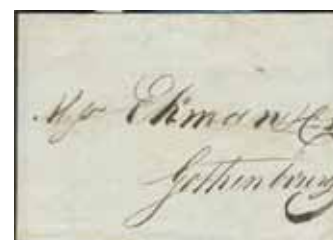 Mssrs Ekman & Co
Gothenburg